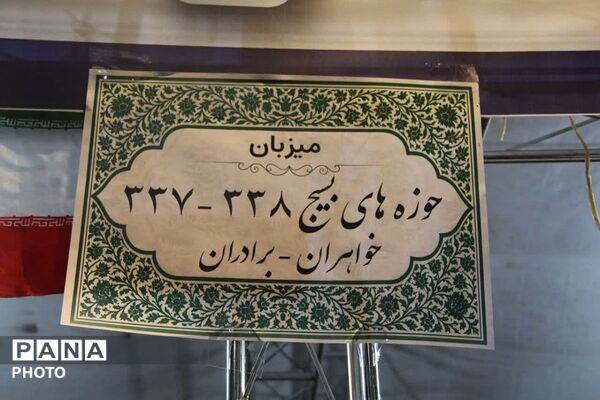 میزبان
حوزه های بسیج ۳۳۸ - ۳۳۷
خواهران - برادران
PANA
PHOTO